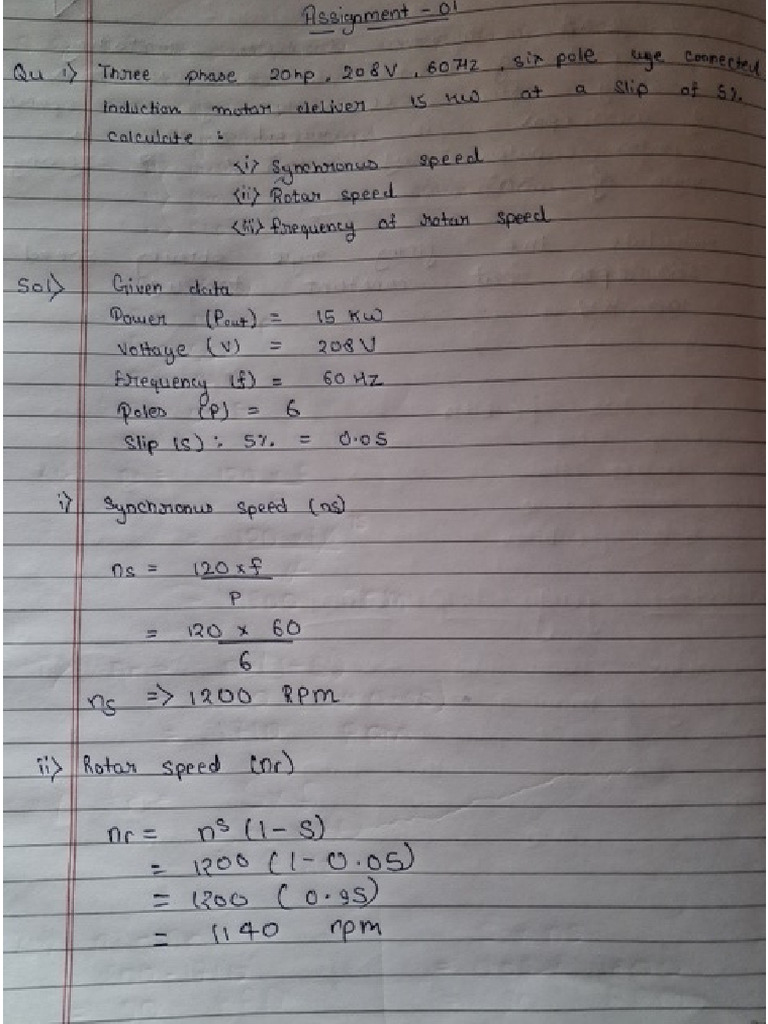 Assignment - 01
Qu 1) Three phase 20hp, 208V, 60Hz, six pole wye connected
induction motor deliver 15 kw at a slip of 5%.
calculate :
<i> Synchronus speed
<ii> Rotar speed
<iii> frequency of rotar speed
Sol) Given data
Power (Pout) = 15 KW
Voltage (V) = 208V
frequency (f) = 60 HZ
Poles (P) = 6
Slip (S) : 5% = 0.05
i) Synchronus speed (ns)
ns = 120 × f
P
= 120 × 60
6
ns => 1200 RPM
ii) Rotar speed (nr)
nr = ns (1 - S)
= 1200 (1 - 0.05)
= 1200 (0.95)
= 1140 rpm